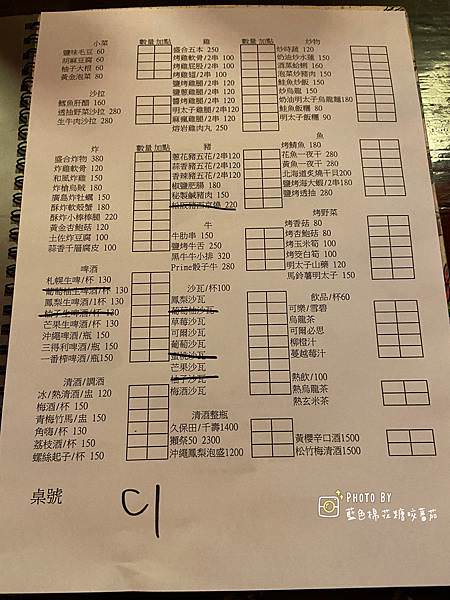 小菜 數量 加點
鹽味毛豆 60
胡麻豆腐 60
柚子大根 60
黃金泡菜 80
沙拉
鱈魚肝醋 160
透抽野菜沙拉 280
生牛肉沙拉 280
炸 數量 加點
盛合炸物 380
炸雞軟骨 110
和風炸雞 150
炸槍烏賊 180
廣島炸牡蠣 150
酥炸軟殼蟹 180
酥炸小棒棒腿 220
黃金杏鮑菇 120
土佐炸豆腐 100
蒜香千層腐皮 100
啤酒
札幌生啤酒/杯 130
葡萄柚生啤酒/杯 130
鳳梨生啤酒/1杯 130
柚子生啤酒/杯 130
芒果生啤酒/杯 130
沖繩啤酒/瓶 150
三得利啤酒/瓶 150
一番榨啤酒/瓶150
清酒/調酒
冰/熱清酒/盅 120
梅酒/杯 150
青梅竹馬/盅 150
角嗨/杯 130
荔枝酒/杯 150
螺絲起子/杯 150
雞 數量 加點
盛合五本 250
烤雞軟骨/2串 100
烤雞屁股/2串 100
烤雞翅/2串 100
鹽烤雞腿/2串 120
鹽蔥雞腿/2串 120
醬烤雞腿/2串 120
明太子雞腿/2串 120
麻瘋雞腿/2串 120
熔岩雞肉丸 250
豬
蔥花豬五花/2串120
蒜香豬五花/2串120
香辣豬五花/2串120
椒鹽肥腸 180
秘製鹹豬肉 150
牛
牛肋串 150
鹽烤牛舌 250
黑牛牛小排 320
Prime骰子牛 280
沙瓦/杯100
鳳梨沙瓦
葡萄柚沙瓦
草莓沙瓦
可爾沙瓦
葡萄沙瓦
蜜桃沙瓦
芒果沙瓦
柚子沙瓦
梅酒沙瓦
清酒整瓶
久保田/千壽1400
獺祭50 2300
沖繩鳳梨泡盛1200
炒物
炒時蔬 120
奶油炒水蓮 150
酒蒸蛤蜊 160
泡菜炒豬肉 150
鮭魚炒飯 150
炒烏龍 150
奶油明太子烏龍麵180
鮭魚飯糰 80
明太子飯糰 90
魚
烤鯖魚 180
花魚一夜干 280
黃魚一夜干 280
北海道炙燒干貝200
鹽烤海大蝦/2串180
鹽烤透抽 280
烤野菜
烤香菇 80
烤杏鮑菇 80
烤玉米筍 100
烤筊白筍 100
明太子山藥 120
馬鈴薯明太子 150
飲品/杯60
可樂/雪碧
烏龍茶
可爾必思
柳橙汁
蔓越莓汁
熱飲/100
熱烏龍茶
熱玄米茶
黃櫻辛口酒1500
松竹梅清酒1500
桌號 C1
PHOTO BY
藍色棉花糖咬蕃茄